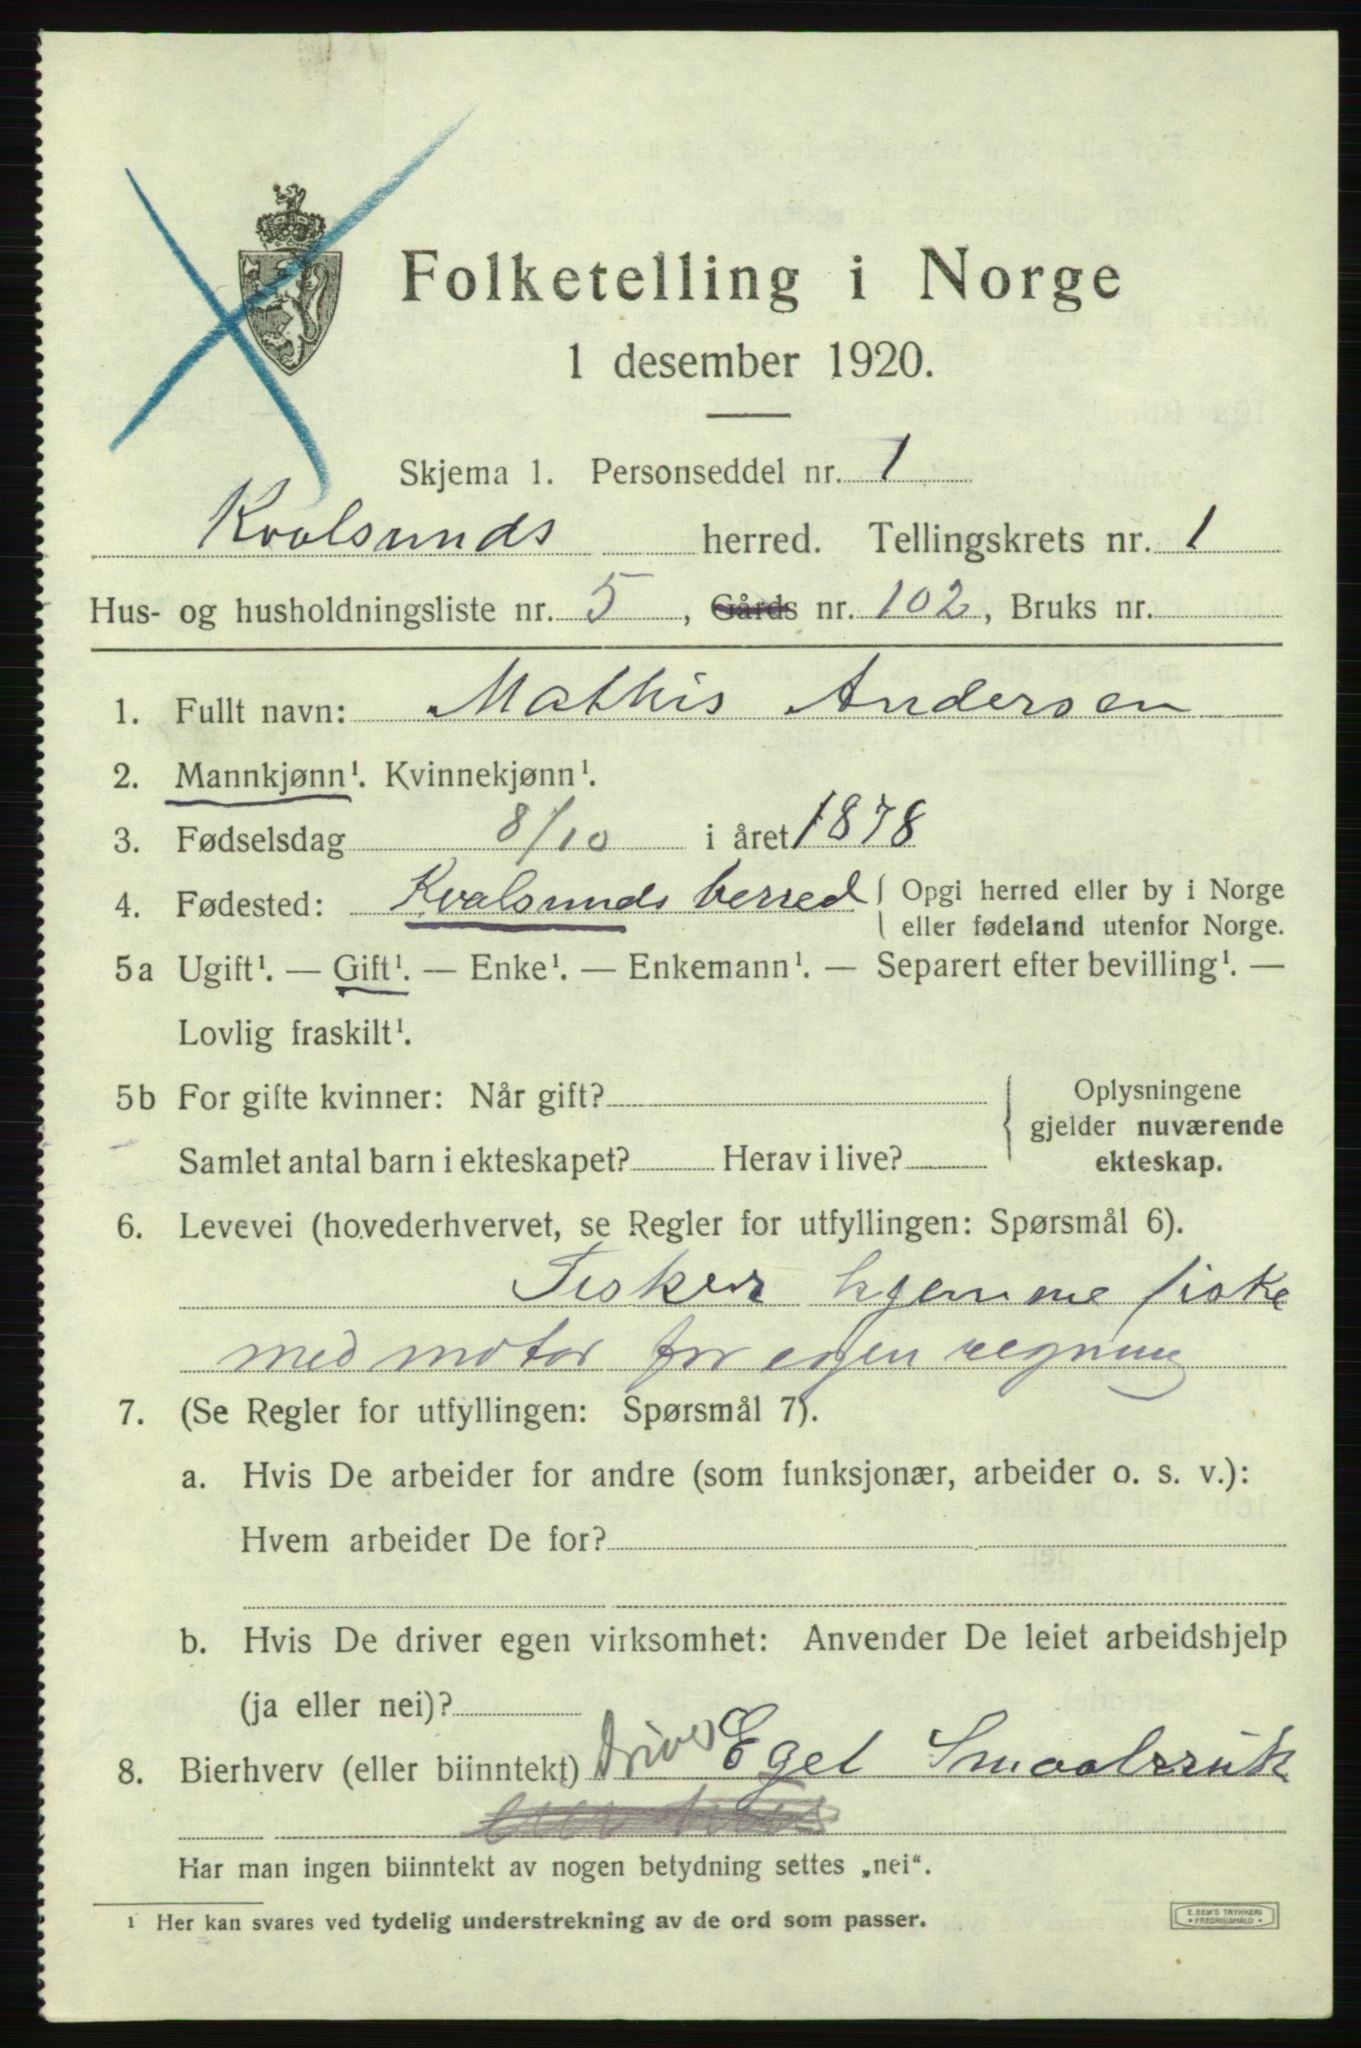 Folketelling i Norge
1 desember 1920.
Skjema 1. Personseddel nr. 1
Kvalsunds herred. Tellingskrets nr. 1
Hus- og husholdningsliste nr. 5, Gårds nr. 102, Bruks nr.
1. Fullt navn: Mathis Andersen
2. Mannkjønn¹. Kvinnekjønn¹.
3. Fødselsdag 8/10 i året 1878
4. Fødested: Kvalsunds herred { Opgi herred eller by i Norge
eller fødeland utenfor Norge.
5a Ugift¹. — Gift¹. — Enke¹. — Enkemann¹. — Separert efter bevilling¹. —
Lovlig fraskilt¹.
5b For gifte kvinner: Når gift? { Oplysningene
gjelder nuværende
Samlet antal barn i ekteskapet? Herav i live? ekteskap.
6. Levevei (hovederhvervet, se Regler for utfyllingen: Spørsmål 6).
Fisker hjemme fiske
med motor for egen regning
7. (Se Regler for utfyllingen: Spørsmål 7).
a. Hvis De arbeider for andre (som funksjonær, arbeider o. s. v.):
Hvem arbeider De for?
b. Hvis De driver egen virksomhet: Anvender De leiet arbeidshjelp
(ja eller nei)?
8. Bierhverv (eller biinntekt) Driver Eget Smaabruk
Har man ingen biinntekt av nogen betydning settes „nei“.
¹ Her kan svares ved tydelig understrekning av de ord som passer.
E. SEM'S TRYKKERI
FREDRIKSHALD